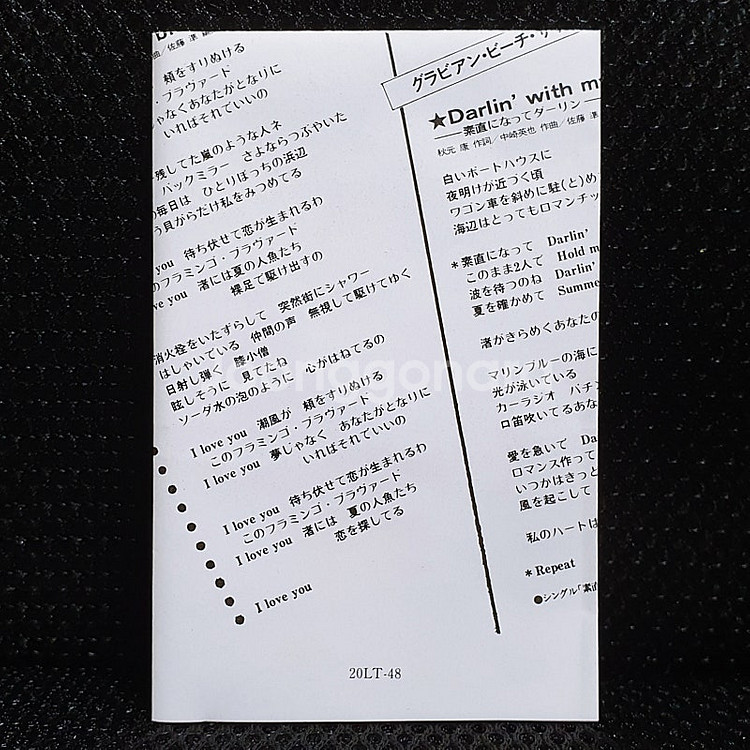 曲/佐藤 準
頬をすりぬける
・ブラヴァード
じゃなくあなたがとなりに
いればそれでいいの
残してた嵐のような人ネ
バックミラー さよならつぶやいた
の毎日は ひとりぼっちの浜辺
う貝がらだけ私をみつめてる
you 待ち伏せて恋が生まれるわ
のフラミンゴ・ブラヴァード
ve you 渚には夏の人魚たち
裸足で駆け出すの
消火栓をいたずらして 突然街にシャワー
はしゃいでいる 仲間の声 無視して駆けてゆく
日射し弾く 陸小僧
眩しそうに 見てたね
ソーダ水の泡のように 心がはねてるの
I love you 潮風が 頬をすりぬける
このフラミンゴ・ブラヴァード
I love you 夢じゃなく あなたがとなりに
いればそれでいいの
I love you 待ち伏せて恋が生まれるわ
このフラミンゴ・ブラヴァード
I love you 渚には 夏の人魚たち
恋を探してる
I love you
グラビアン・ビーチ・
★Darlin' with m
—素直になってダーリン—
秋元 康 作詞/中崎英也 作曲/佐藤 準
白いボートハウスに
夜明けが近づく頃
ワゴン車を斜めに駐(と)め
海辺はとってもロマンチッ
*素直になって Darlin'
このまま2人で Hold m
波を待つのね Darlin'
夏を確かめて Summe
渚がきらめくあなたの
マリンブルーの海に
光が泳いている
カーラジオ バチン
口笛吹いてるあな
愛を急いで Da
ロマンス作って
いつかはきっと
風を起こして
私のハートは
*Repeat
●シングル「素直
20LT-48